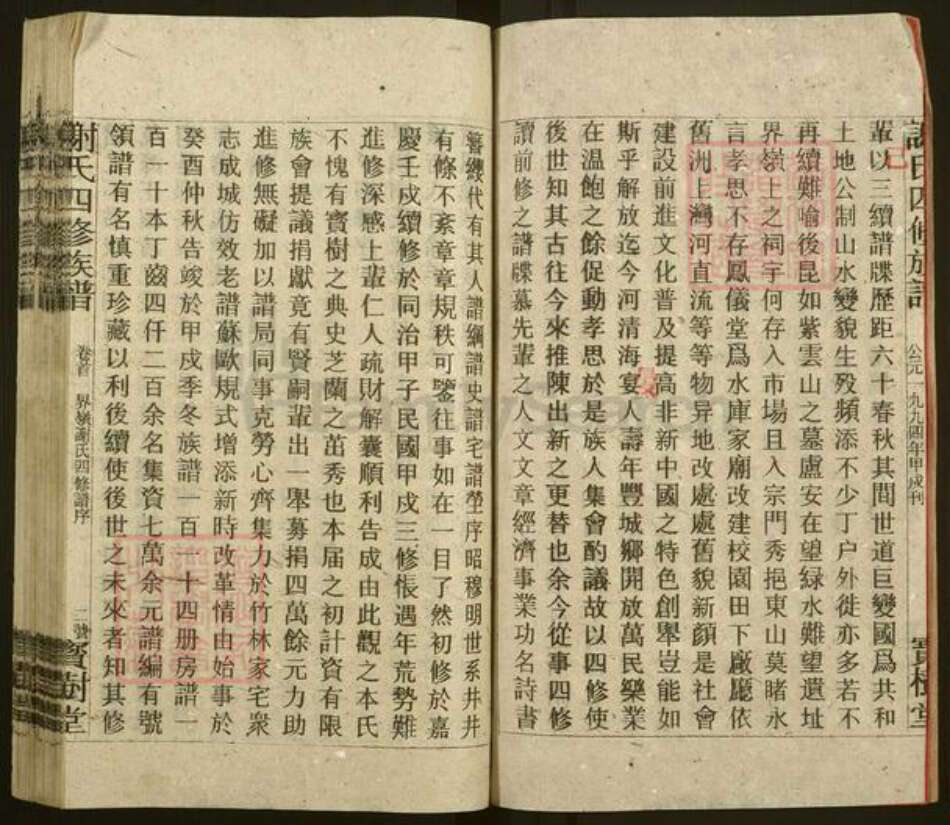 謝氏四修族譜
公元一九九四年甲戌刊
寶樹堂
輩以三續譜牒歷距六十春秋其間世道巨變國爲共和
土地公制山水變貌生殁頻添不少丁户外徙亦多若不
再續難喻後昆如紫雲山之墓盧安在望緑水難望遺址
界嶺上之祠宇何存入市場且入宗門秀挹東山莫睹永
言孝思不存鳳儀堂爲水庫家廟改建校園田下廠廳依
舊洲上灣河直流等等物异地改處處舊貌新顔是社會
建設前進文化普及提高非新中國之特色創舉豈能如
斯乎解放迄今河清海宴人壽年豐城鄉開放萬民樂業
在温飽之餘促動孝思於是族人集會酌議故以四修使
後世知其古往今來推陳出新之更替也余今從事四修
讀前修之譜牒慕先輩之人文文章經濟事業功名詩書
簪纓代有其人譜綱譜史譜宅譜塋序昭穆明世系井井
有條不紊章章規秩可鑒往事如在一目了然初修於嘉
慶壬戍續修於同治甲子民國甲戍三修悵遇年荒勢難
進修深感上輩仁人疏財解囊順利告成由此觀之本氏
不愧有寳樹之典史芝蘭之茁秀也本届之初計資有限
族會提議捐獻竟有賢嗣輩出一舉募捐四萬餘元力助
進修無礙加以譜局同事克勞心齊集力於竹林家宅衆
志成城仿效老譜蘇歐規式增添新時改革情由始事於
癸酉仲秋告竣於甲戍季冬族譜一百一十四册房譜一
百一十本丁齒四仟二百余名集資七萬余元譜編有號
領譜有名慎重珍藏以利後續使後世之未來者知其修
謝氏四修族譜
卷首 界嶺謝氏四修譜序
二號
寳樹堂